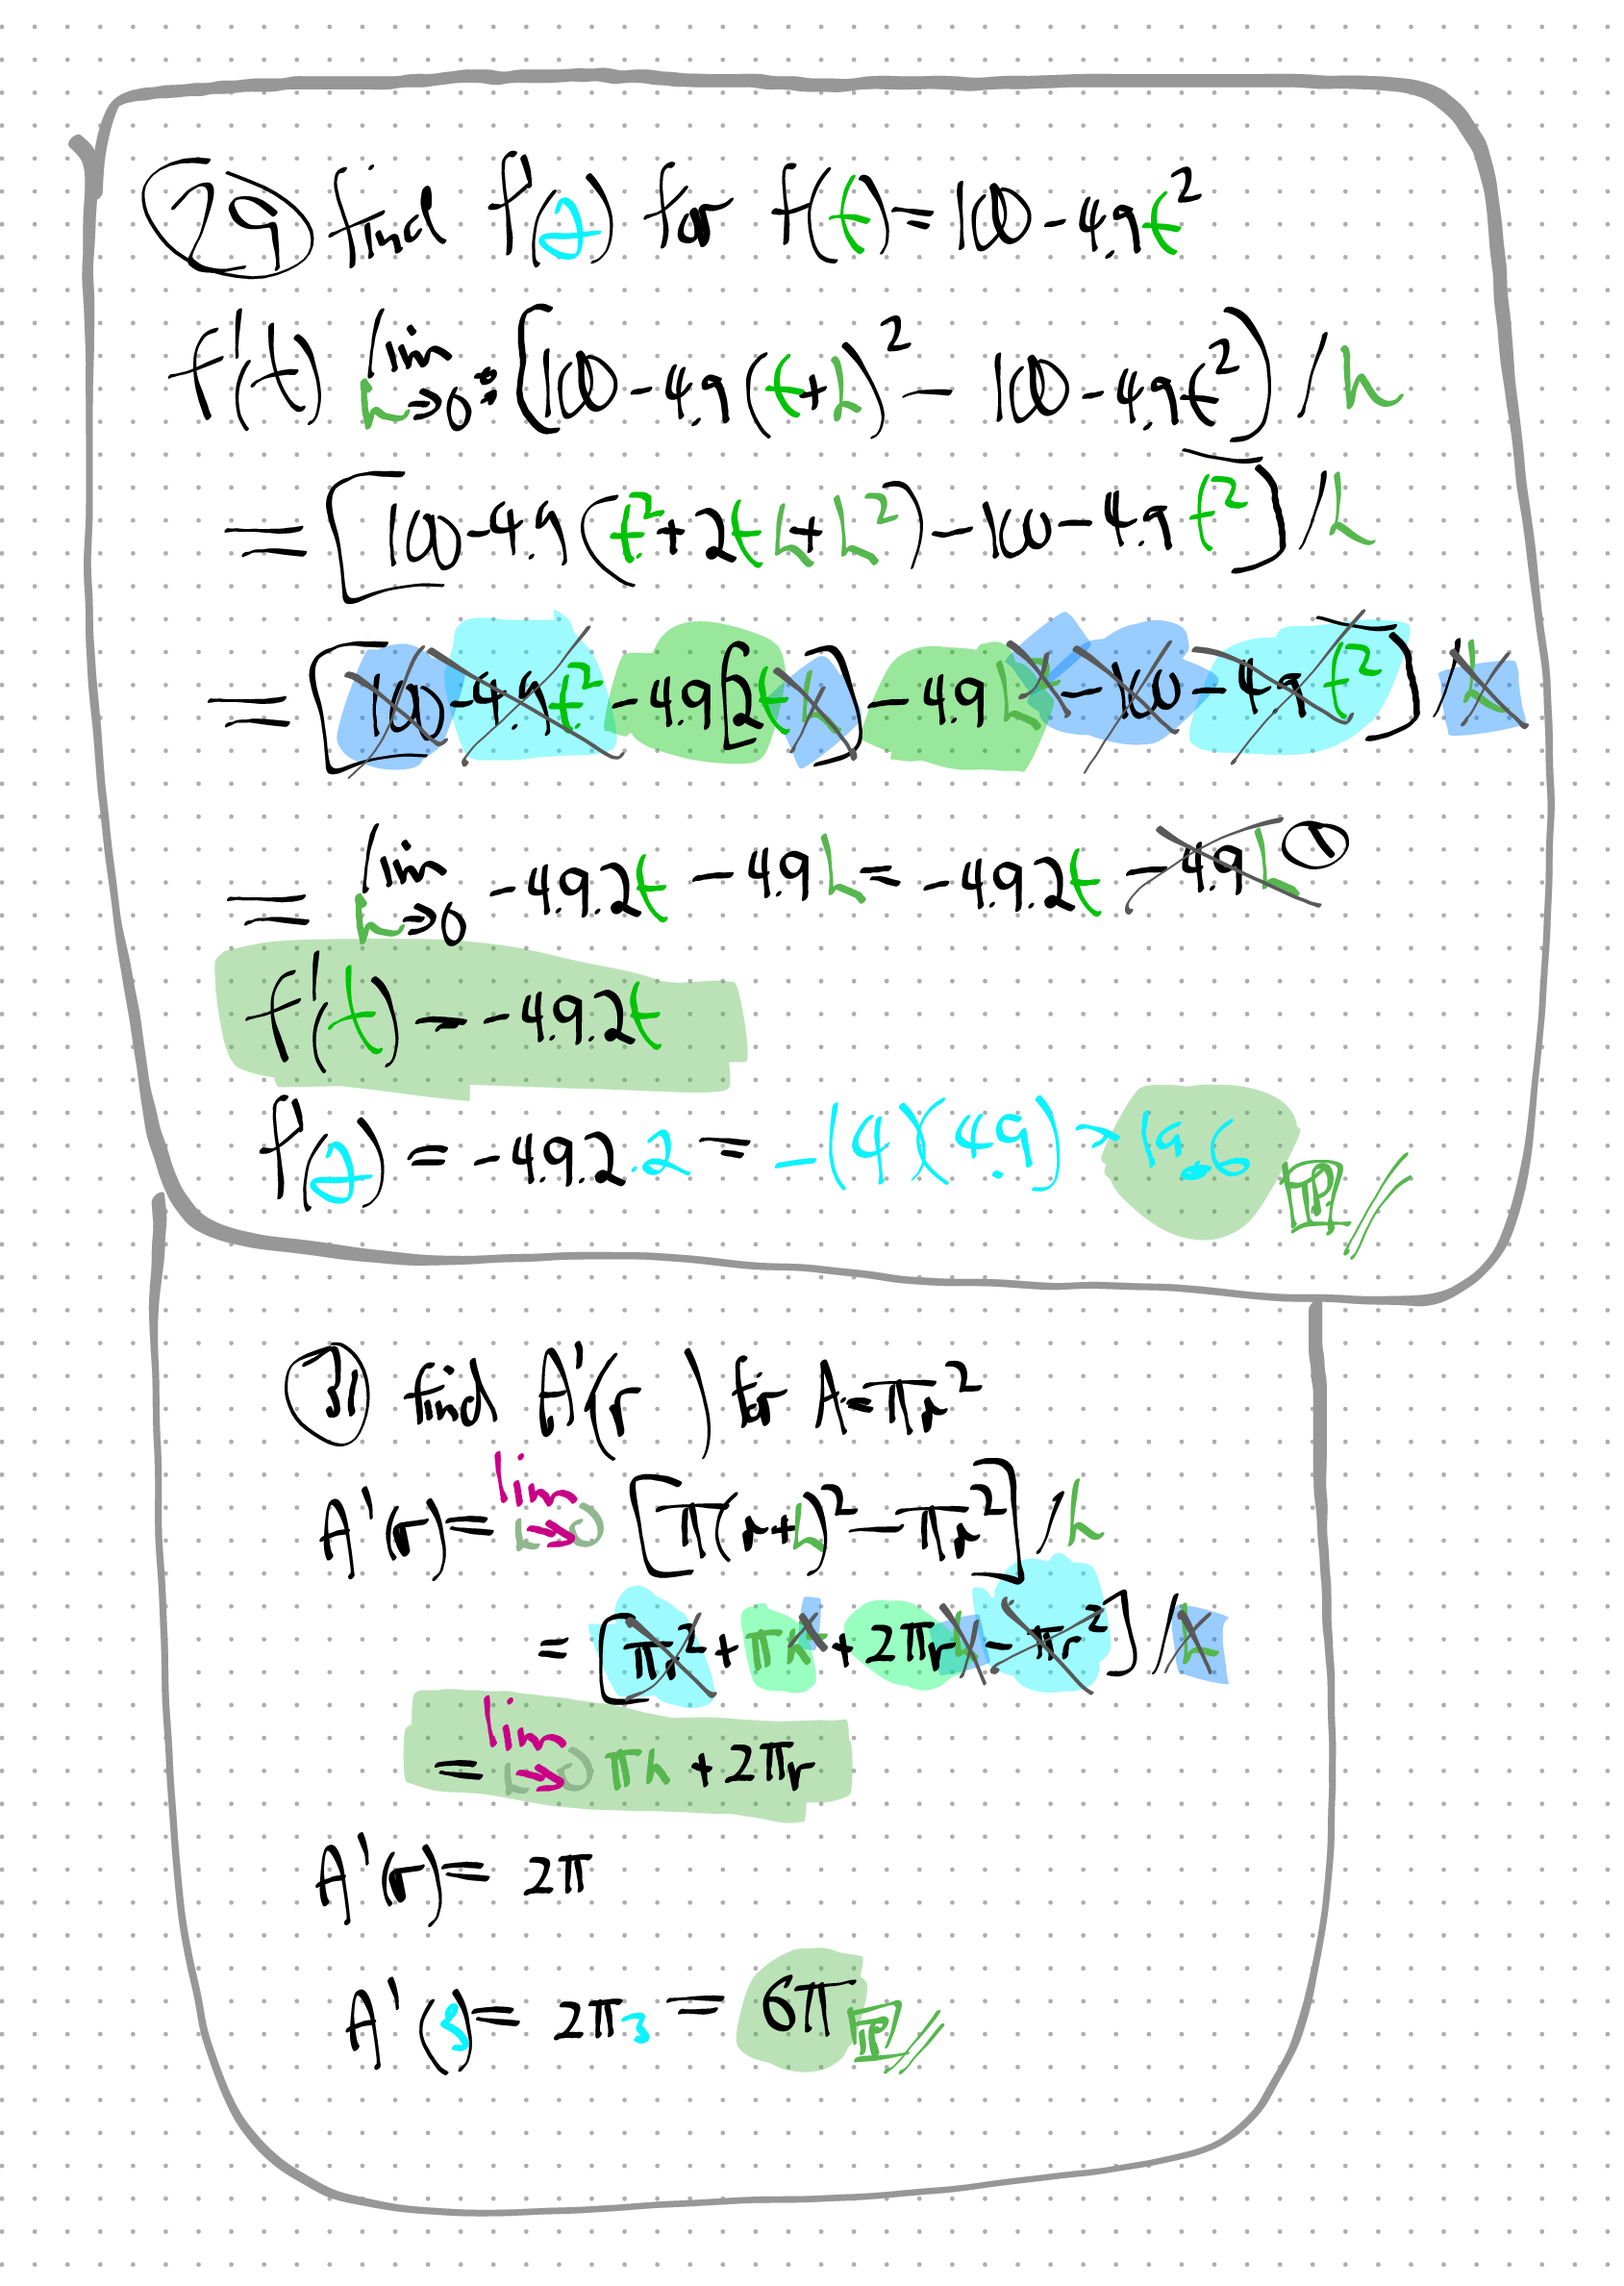 29 find f'(2) for f(t)=100-4.9t²
f'(t) lim h→0 : [100-4.9(t+h)²-100-4.9t²]/h
=[100-4.9(t²+2th+h²)-100-4.9t²]/h
=[100-4.9t²-4.9[2th]-4.9h²-100-4.9t²]/h
= lim h→0 -4.9.2t-4.9h=-4.9.2t-4.9h
f'(t)=-4.9.2t
f'(2)=-4.9.2.2=-(4)(4.9)=19.6
31 find A'(r ) for A=πr²
A'(r)= lim h→0 [π(r+h)²-πr²]/h
=[πr²+πh²+2πrh-πr²]/h
= lim h→0 πh+2πr
A'(r)=2π
A'(3)=2π3=6π